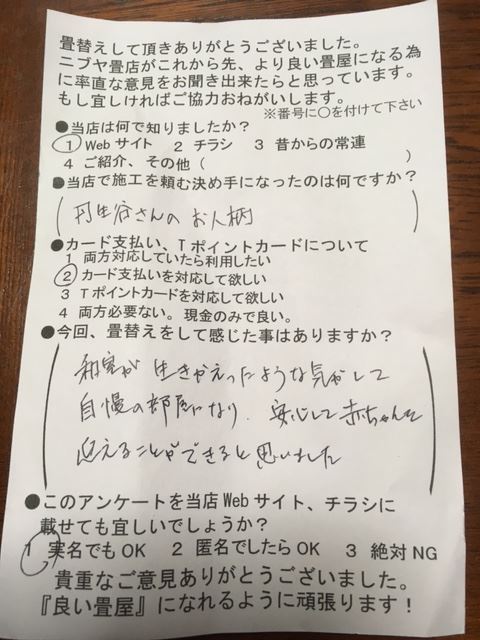 畳替えして頂きありがとうございました。
ニブヤ畳店がこれから先、より良い畳屋になる為
に率直な意見をお聞き出来たらと思っています。
もし宜しければご協力おねがいします。
※番号に〇を付けて下さい
●当店は何で知りましたか?
1 Webサイト 2 チラシ 3 昔からの常連
4 ご紹介、その他( )
●当店で施工を頼む決め手になったのは何ですか?
(丹生谷さんのお人柄)
●カード支払い、Tポイントカードについて
1 両方対応していたら利用したい
2 カード支払いを対応して欲しい
3 Tポイントカードを対応して欲しい
4 両方必要ない。現金のみで良い。
●今回、畳替えをして感じた事はありますか?
(和室が生きかえったような気がして
自慢の部屋になり、安心して赤ちゃんを
迎えることができると思いました)
●このアンケートを当店Webサイト、チラシに
載せても宜しいでしょうか?
1 実名でもOK 2 匿名でしたらOK 3 絶対NG
貴重なご意見ありがとうございました。
『良い畳屋』になれるように頑張ります!